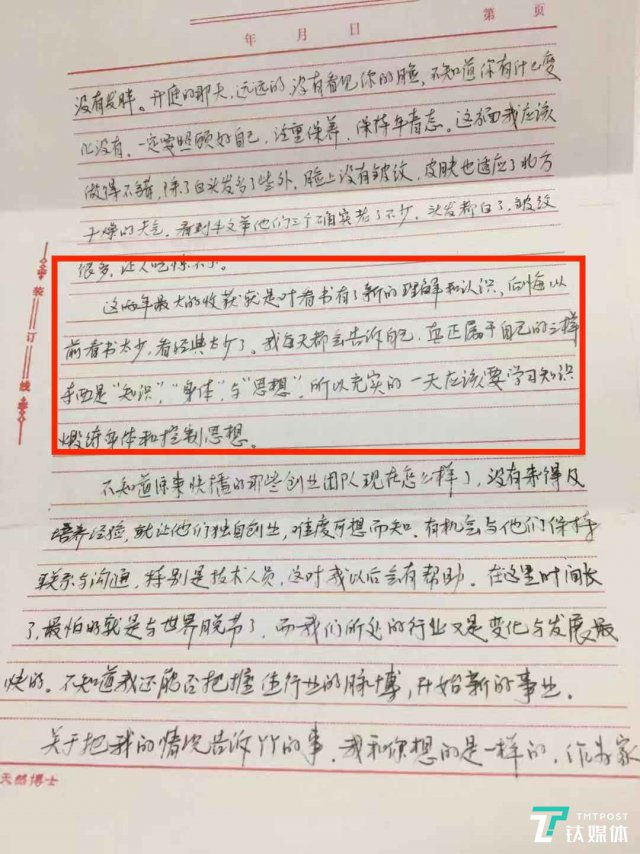 第 页
年 月 日
没有发胖。开庭的那天,远远的没有看见你的脸,不知道你有什么变
化没有,一定要照顾好自己,注重保养,保持年轻态。这方面我应该
做得不错,除了白头发多了些外,脸上没有皱纹,皮肤也适应了北方
干燥的天气,看到牛文举他们三个确实老了不少,头发都白了,皱纹
很多,让人吃惊不小。
这两年最大的收获就是对看书有了新的理解和认识,后悔以
前看书太少,看经典太少了。我每天都会告诉自己,真正属于自己的三样
东西是“知识”,“身体”与“思想”,所以充实的一天应该要学习知识
煅炼身体和控制思想。
不知道原来快播的那些创业团队现在怎么样了,没有来得及
培养经验,就让他们独自创业,难度可想而知。有机会与他们保持
联系与沟通,特别是技术人员,这对我以后会有帮助。在这里时间长
了,最怕的就是与世界脱节了,而我们所处的行业又是变化与发展最
快的。不知道我还能否把握住行业的脉博,开始新的事业。
关于把我的情况告诉丫丫的事,我和你想的是一样的,作为家
装订线
天然博士
TMTPOST
钛媒体